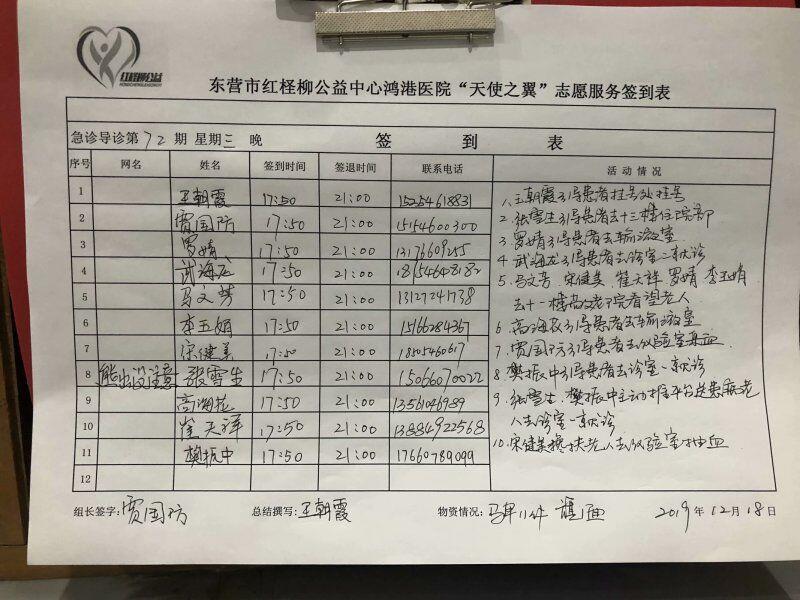 红柽柳公益
东营市红柽柳公益中心鸿港医院“天使之翼”志愿服务签到表
急诊导诊第 72 期 星期三 晚 签 到 表
序号 网名 姓名 签到时间 签退时间 联系电话 活 动 情 况
1 王朝霞 17:50 21:00 15254618831
2 贾国防 17:50 21:00 15154600300
3 罗婧 17:50 21:00 13176609255
4 武海龙 17:50 21:00 18154628182
5 马文芳 17:50 21:00 13127241738
6 李玉娟 17:50 21:00 15166284367
7 宋健美 17:50 21:00 18505460617
8 能出没注意 张雪生 17:50 21:00 15066070022
9 高海花 17:50 21:00 13561046989
10 崔天祥 17:50 21:00 13884922568
11 樊振中 17:50 21:00 17660789099
12
1、王朝霞引导患者挂号处挂号
2、张雪生引导患者去十三楼住院部
3、罗婧引导患者去输液室
4、武海龙引导患者去诊室一就诊
5、马文芳、宋健美、崔天祥、罗婧、李玉娟
去十一楼养老院看望老人
6、高海花引导患者去输液室
7、贾国防引导患者去化验室采血
8、樊振中引导患者去诊室一就诊
9、张雪生、樊振中主动推平车送患病老
人去诊室一就诊
10、宋健美搀扶老人去化验室抽血
组长签字: 贾国防 总结撰写: 王朝霞 物资情况: 马甲11件 2019 年 12 月 18 日